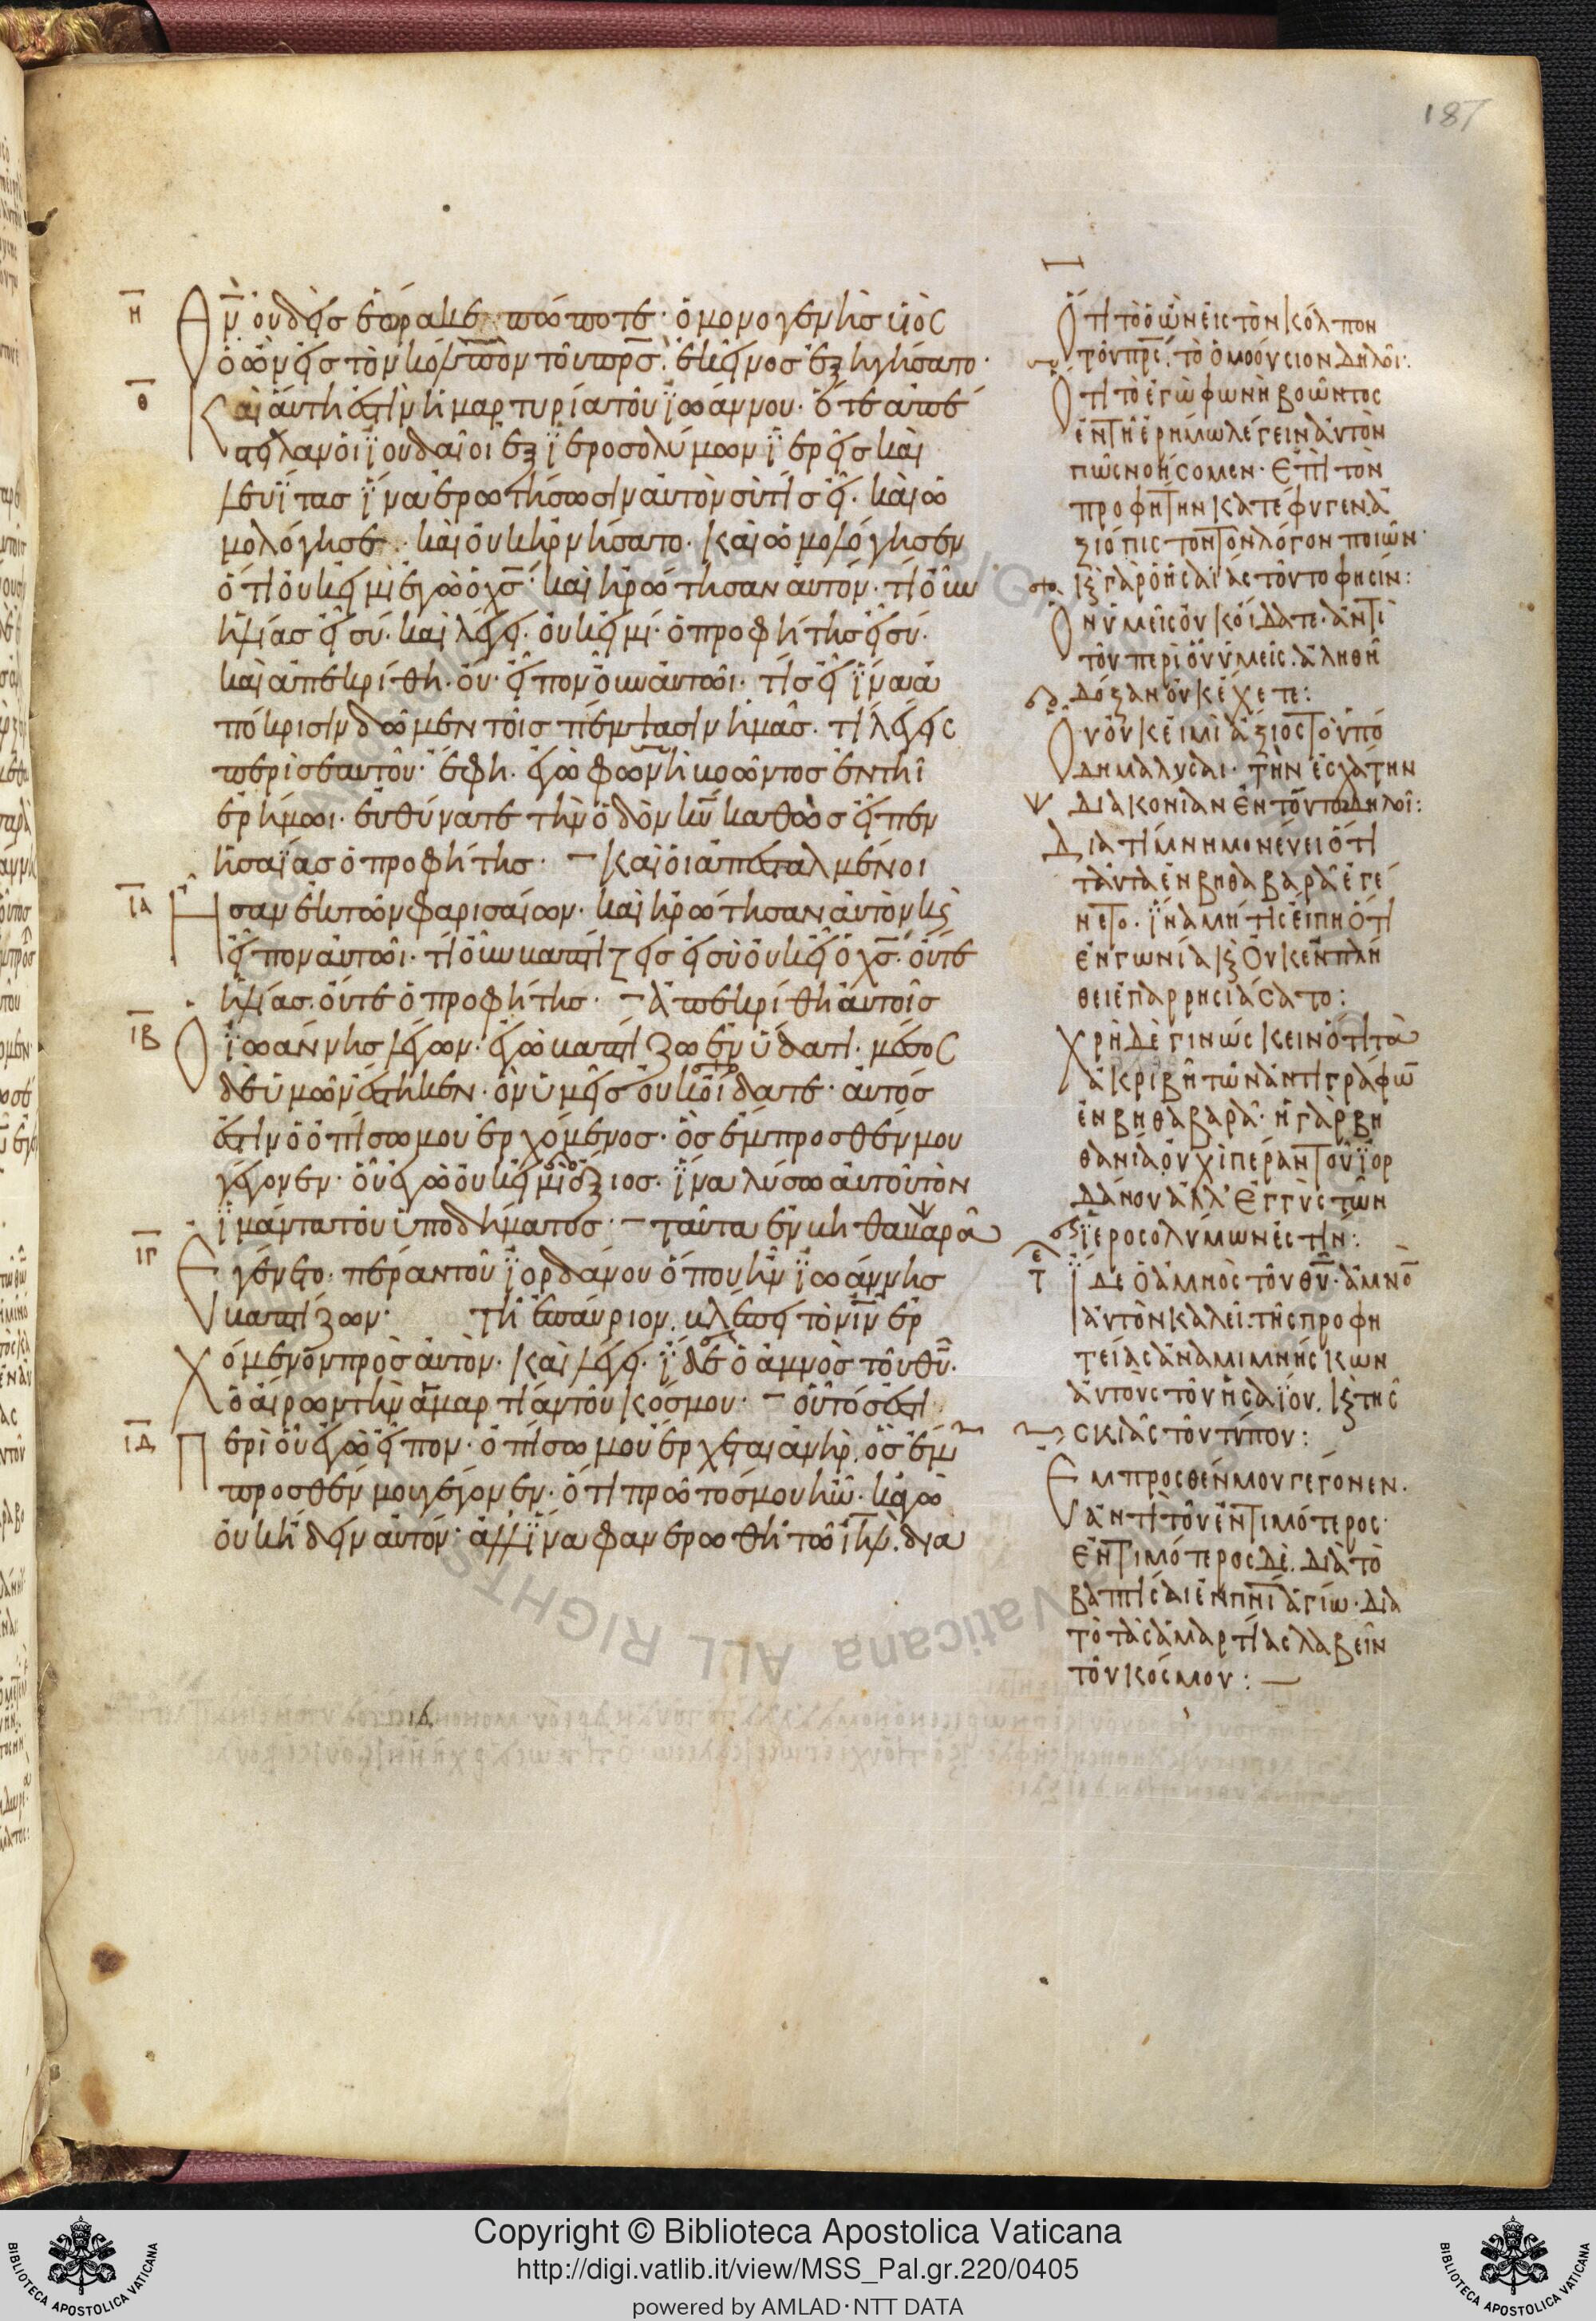 187
Η
Θν̄ οὐδεὶς ἑώρακε πώποτε· ὁ μονογενὴς υἱὸς
ὁ ὢν εἰς τὸν κόλπον τοῦ πρ̄ς̄· ἐκεῖνος ἐξηγήσατο·
Θ
Καὶ αὕτη ἐστὶν ἡ μαρτυρία τοῦ ϊωάννου· ὅτε ἀπέ
στειλαν οἱ ϊουδαῖοι ἐξ ϊεροσολύμων ϊερεῖς καὶ
λευΐτας ϊνα ἐρωτήσωσιν αὐτὸν σὺ τίς εἶ· καὶ ὡ
μολόγησε· καὶ οὐκ ἠρνήσατο· καὶ ὡμολόγησεν
ὅτι οὐκ εἰμὶ ἐγὼ ὁ χ̄ς̄· καὶ ἠρώτησαν αὐτόν· τί οὖν
ἠλίας εἶ σύ· καὶ λέγει· οὐκ εἰμί· ὁ προφήτης εἶ σύ·
καὶ ἀπεκρίθη· οὔ· εἶπον οὖν αὐτῶι· τίς εἶ ϊνα ἀ
πόκρισιν δῶμεν τοῖς πέμψασιν ἡμᾶς· τί λέγεις
περὶ σεαυτοῦ· ἔφη· ἐγὼ φωνὴ βοῶντος ἐν τῆι
ἐρήμωι· εὐθύνατε τὴν ὁδὸν κ̄ῡ καθὼς εἶπεν
ἡσαΐας ὁ προφήτης· καὶ οἱ ἀπεσταλμένοι
ΙΑ
Ησαν ἐκ τῶν φαρισαίων· καὶ ἠρώτησαν αὐτὸν κ̀
εἶπον αὐτῶι· τί οὖν βαπτίζεις εἰ σὺ οὐκ εἶ ὁ χ̄ς̄· οὔτε
ἠλίας· οὔτε ὁ προφήτης· ἀπεκρίθη αὐτοῖς
ΙΒ
Ο ϊωάννης λέγων· ἐγὼ βαπτίζω ἐν ὕδατι· μέσος
δὲ ὑμῶν ἕστηκεν· ὃν ὑμεῖς οὐκ οἴδατε· αὐτός
ἐστιν ὁ ὀπίσω μου ἐρχόμενος· ὃς ἔμπροσθέν μου
γέγονεν· οὗ ἐγὼ οὐκ εἰμὶ ἄξιος· ϊνα λύσω αὐτοῦ τὸν
ϊμάντα τοῦ ὑποδήματος· ταῦτα ἐν βηθαβαρᾶ
ΙΓ
Εγένετο· πέραν τοῦ ϊορδάνου ὅπου ἦν ϊωάννης
βαπτίζων· Τῆ ἐπαύριον βλέπει τὸν ῑν̄ ἐρ
χόμενον πρὸς αὐτόν· καὶ λέγει· ϊδε ὁ ἀμνὸς τοῦ θ̄ῡ·
ὁ αἴρων τὴν ἁμαρτίαν τοῦ κόσμου· οὗτός ἐστι
ΙΔ
Περὶ οὗ ἐγὼ εἶπον· ὀπίσω μου ἔρχεται ἀνὴρ· ὃς ἔμ
προσθέν μου γέγονεν· ὅτι πρῶτός μου ἦν· κἀγὼ
οὐκ ἤιδειν αὐτόν· ἀλλ' ϊνα φανερωθῆ τῶ ῑηλ̄· δια
Ὅτι τὸ ὁ ὢν εἰς τὸν κόλπον
τοῦ πρ̄ς̄. τὸ ὁμοούσιον δηλοῖ:
Ὅτι τὸ ἐγὼ φωνὴ βοῶντος
ἐν τῆ ἐρήμω λέγειν αὐτὸν
πῶς νοήσομεν· Ἐπὶ τὸν
προφήτην κατέφυγεν. ἀ
ξιόπιστον τὸν λόγον ποιῶν·
κ̀ γὰρ ὁ ἡσαΐας τοῦτο φησιν:
Ὃν ὑμεῖς οὐκ οἴδατε· ἀντὶ
τοῦ περὶ οὗ ὑμεῖς. ἀληθῆ
δόξαν οὐκ ἔχετε:
Οὗ οὐκ εἰμὶ ἄξιος τὸ ὑπό
δημα λῦσαι· τὴν ἐσχάτην
διακονίαν ἐν τούτω δηλοῖ:
Διατί μνημονεύει ὅτι
ταῦτα ἐν βηθαβαρᾶ ἐγέ
νετο· ϊνα μή τις εἴπη ὅτι
ἐν γωνία κ̀ οὐκ ἐν πλή
θει ἐπαρρησιάσατο:
Χρὴ δὲ γινώσκειν ὅτι τὰ
ἀκριβῆ τῶν ἀντιγράφω̄
ἐν βηθαβαρᾶ· ἡ γὰρ βη
θανία. οὐχὶ πέραν τοῦ ϊορ
δάνου ἀλλ' ἐγγὺς τῶν
ϊεροσολύμων ἐστιν:
Ϊδε ὁ ἀμνὸς τοῦ θ̄ῡ· ἀμνὸ
αὐτὸν καλεῖ. τῆς προφη
τείας ἀναμιμνήσκων
αὐτοὺς τοῦ ἡσαΐου. κ̀ τῆς
σκιᾶς τοῦ τύπου:
Ἔμπροσθέν μου γέγονεν.
ἀντὶ τοῦ ἐντιμότερος·
ἐντιμότερος δὲ. διὰ τὸ
βαπτίσαι ἐν π̄ν̄ῑ ἁγίω· δια
τὸ τὰς ἁμαρτίας λαβεῖν
τοῦ κόσμου:
Copyright © Biblioteca Apostolica Vaticana
http://digi.vatlib.it/view/MSS_Pal.gr.220/0405
powered by AMLAD·NTT DATA
BIBLIOTECA APOSTOLICA VATICANA
BIBLIOTECA APOSTOLICA VATICANA